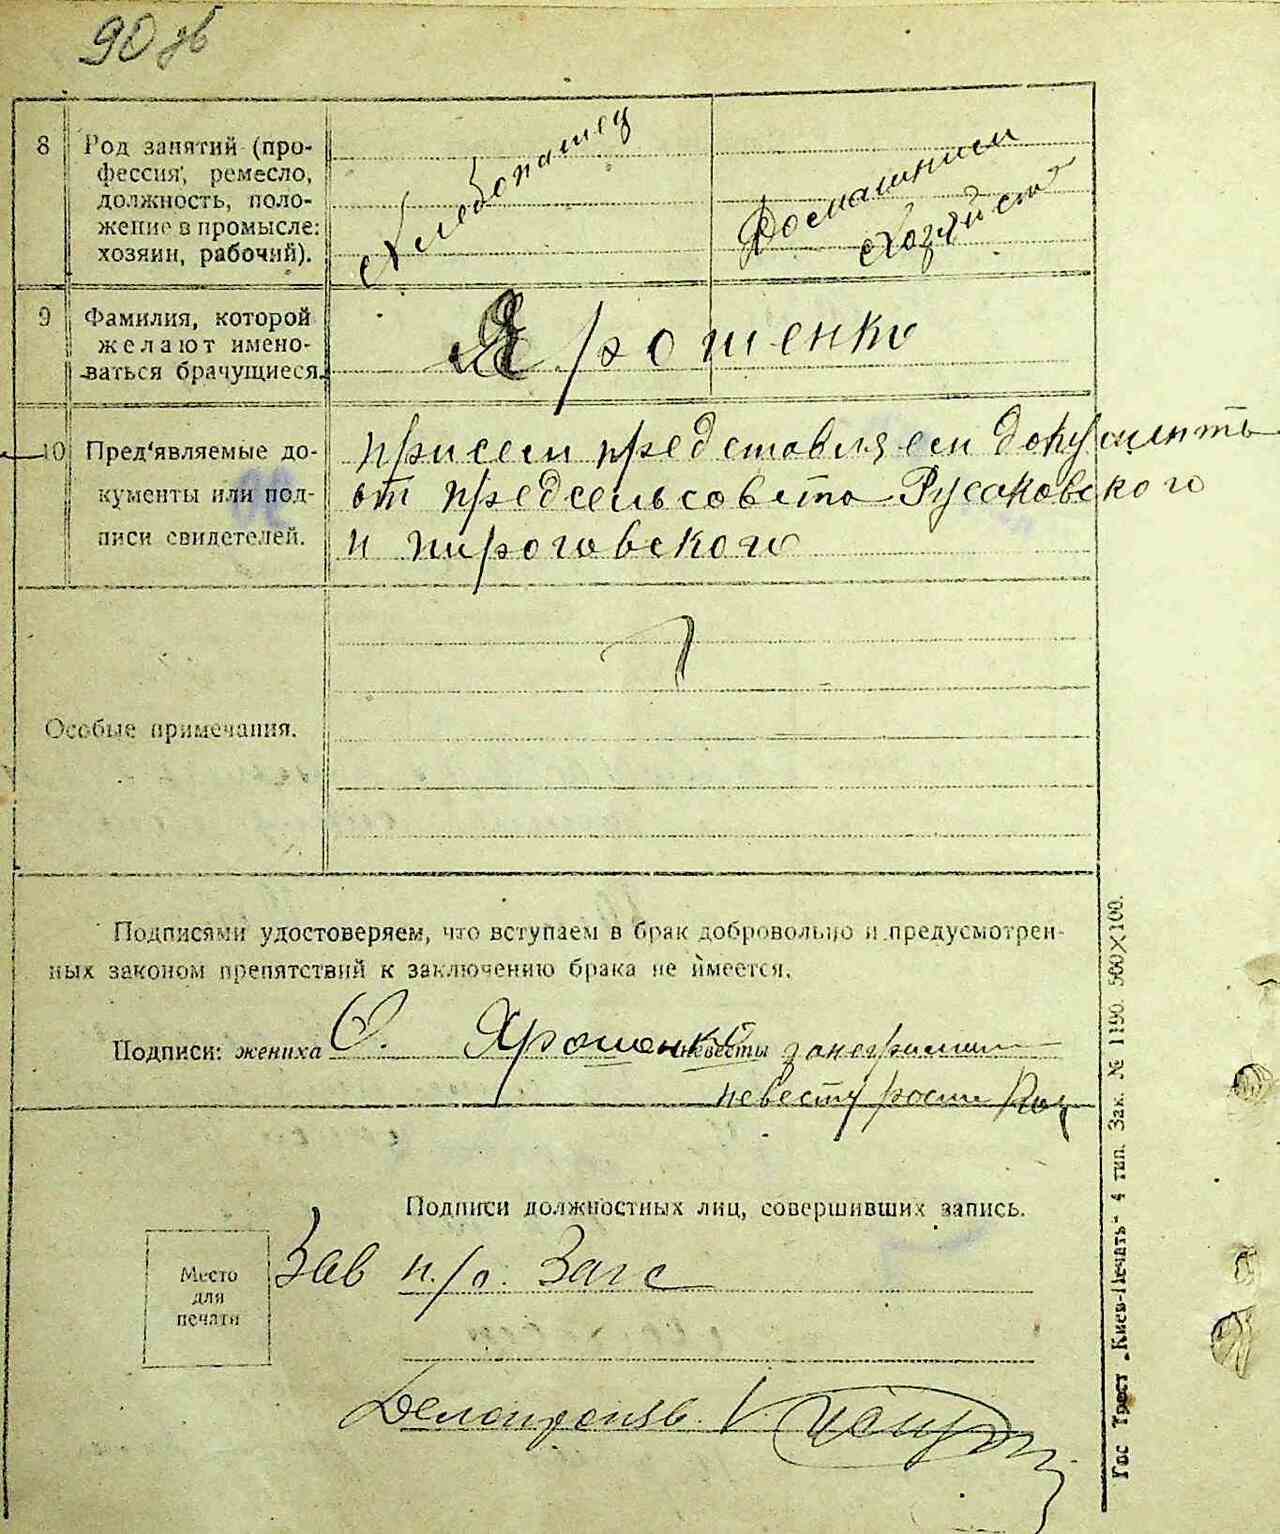 90 зв
8 Род занятий (про-
фессия, ремесло,
должность, поло-
жение в промысле:
хозяин, рабочий).
Хлебопашец
Домашнием
Хозяйство
9 Фамилия, которой
желают имено-
ваться брачущиеся.
Ярошенко
10 Пред'явля​емые до-
кументы или под-
писи свидетелей.
присем представляем документь
от предсельсовета Русаковского
и пироговского
Особые примечания.
Подписями удостоверяем, что вступаем в брак добровольно и предусмотрен-
ных законом препятствий к заключению брака не имеется.
Подписи: жениха О. Ярошенко невесты
невесту
Подписи должностных лиц, совершивших запись.
Место
для
печати
Зав п/о. Загс
Делопроизв.
Гос Трест „Киев-Печать“ 4 тип. Зак. № 1190. 500×100.